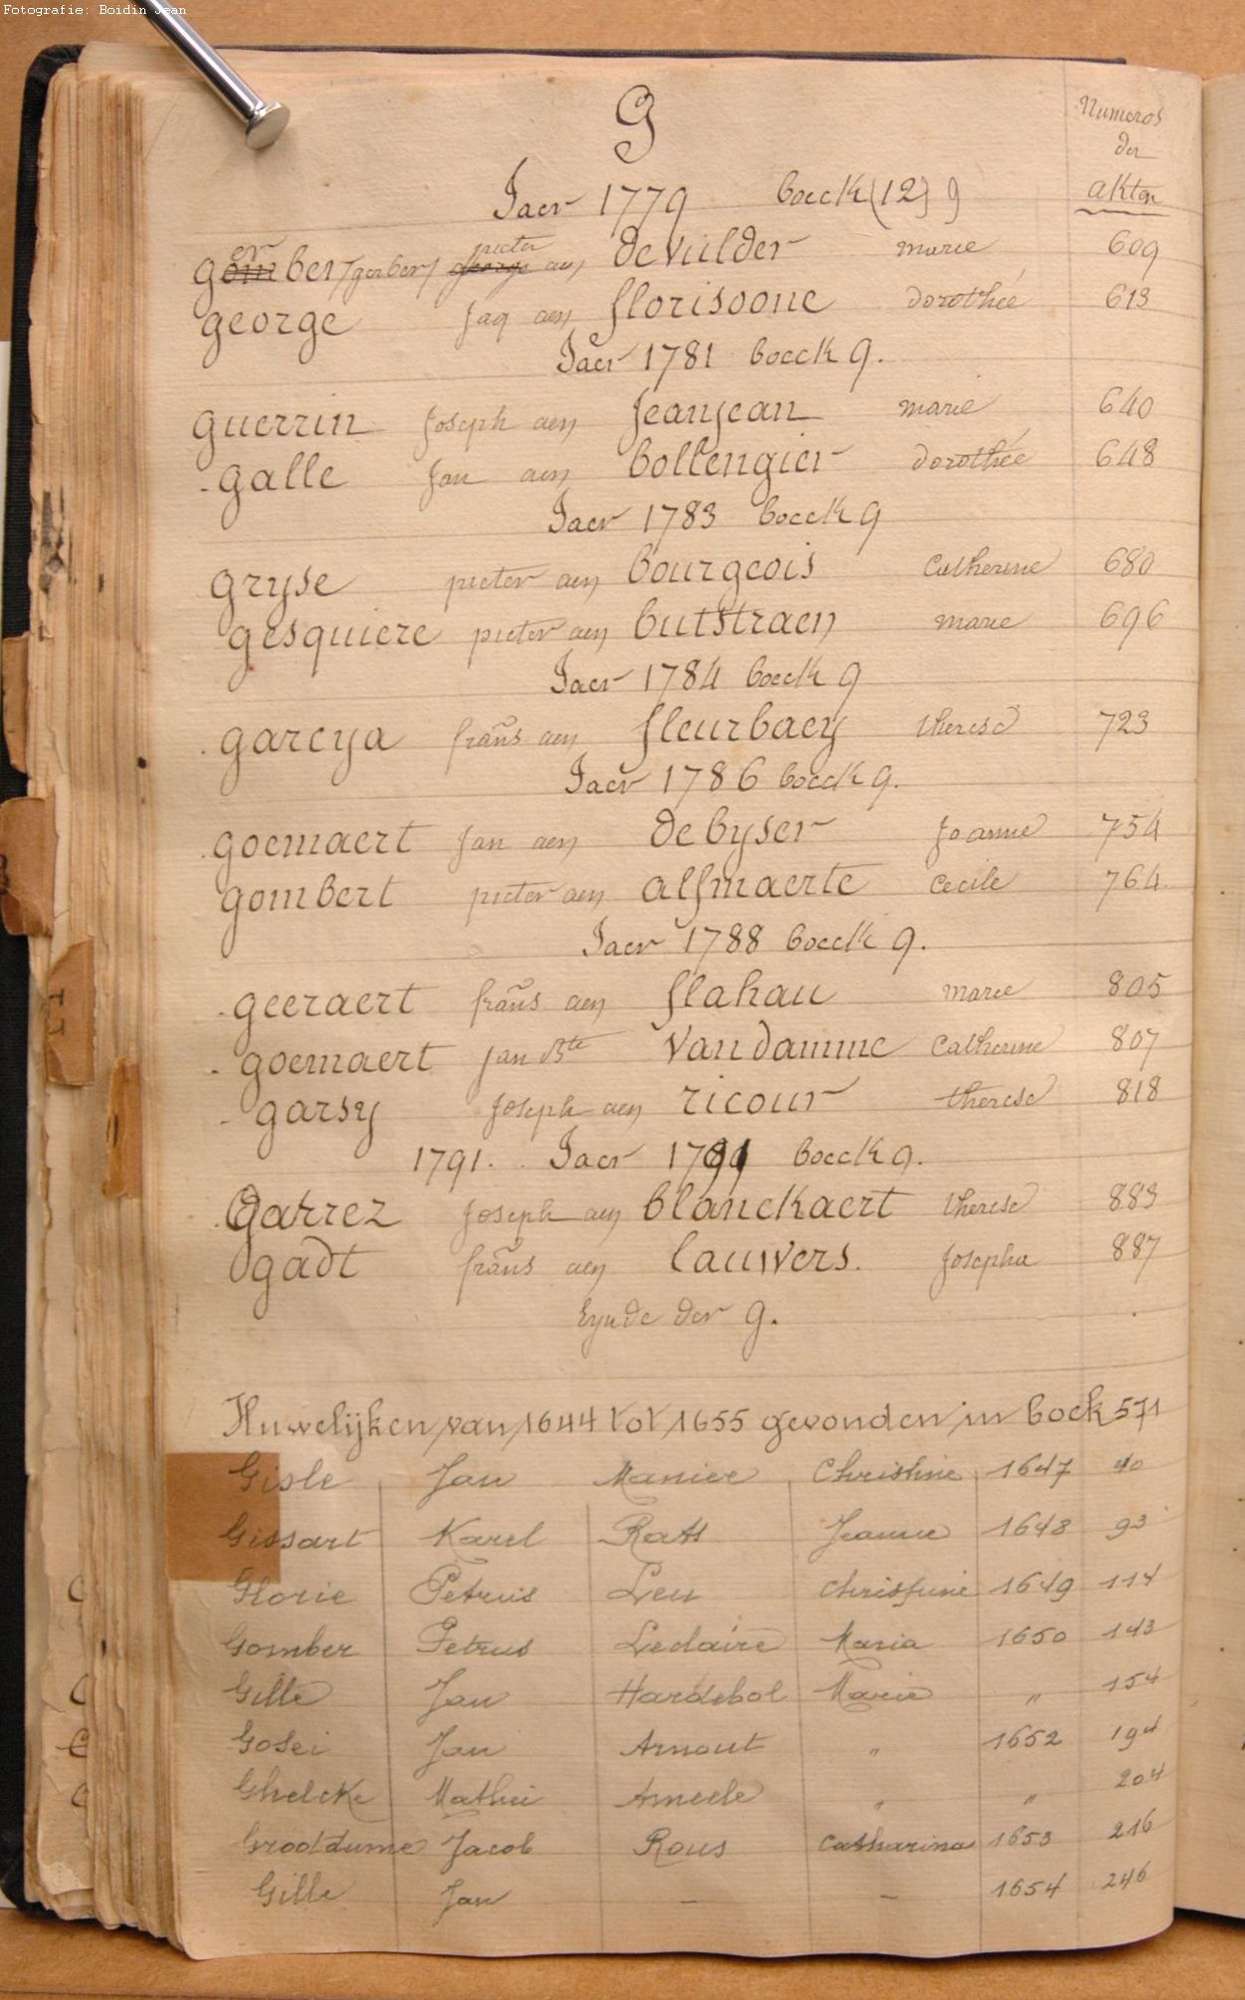 Fotografie: Boidin Jean
G
Numeros
der
akten
Jaer 1779 boeck (12) 9
er pieter
gomber /gerber/ george aen devulder marie 609
george Jaq aen florisoone dorothée 613
Jaer 1781 boeck 9.
guerrin Joseph aen Jeanjean marie 640
galle Jan aen bollengier dorothée 648
Jaer 1783 boeck 9
gryse pieter aen bourgeois Catherine 680
gesquiere pieter aen butstraen marie 696
Jaer 1784 boeck 9
garcya frans aen fleurbaey therese 723
Jaer 1786 boeck 9.
goemaert Jan aen debyser Joanne 754
gombert pieter aen alsmaerte Cecile 764
Jaer 1788 boeck 9.
geeraert frans aen flahau marie 805
goemaert Jan Bte Vandamme Catherine 807
garsy Joseph aen ricour therese 818
1791. Jaer 1791 boeck 9.
garrez Joseph aen blanckaert therese 883
gadt frans aen lauwers. Josepha 887
Eynde der g.
Huwelijken van 1644 tot 1655 gevonden in boek 571
Gisle Jan Maniee Christine 1647 40
Gissart Karel Rats Jeanne 1648 93
Glorie Petrus Leu Christine 1649 114
Gomber Petrus Leclaire Maria 1650 143
Gille Jan Hardebol Marie " 154
Gosei Jan Arnout " 1652 194
Ghelcke Mathei Ameele " " 204
Grootdume Jacob Rous Catharina 1653 216
Gille Jan — — 1654 246